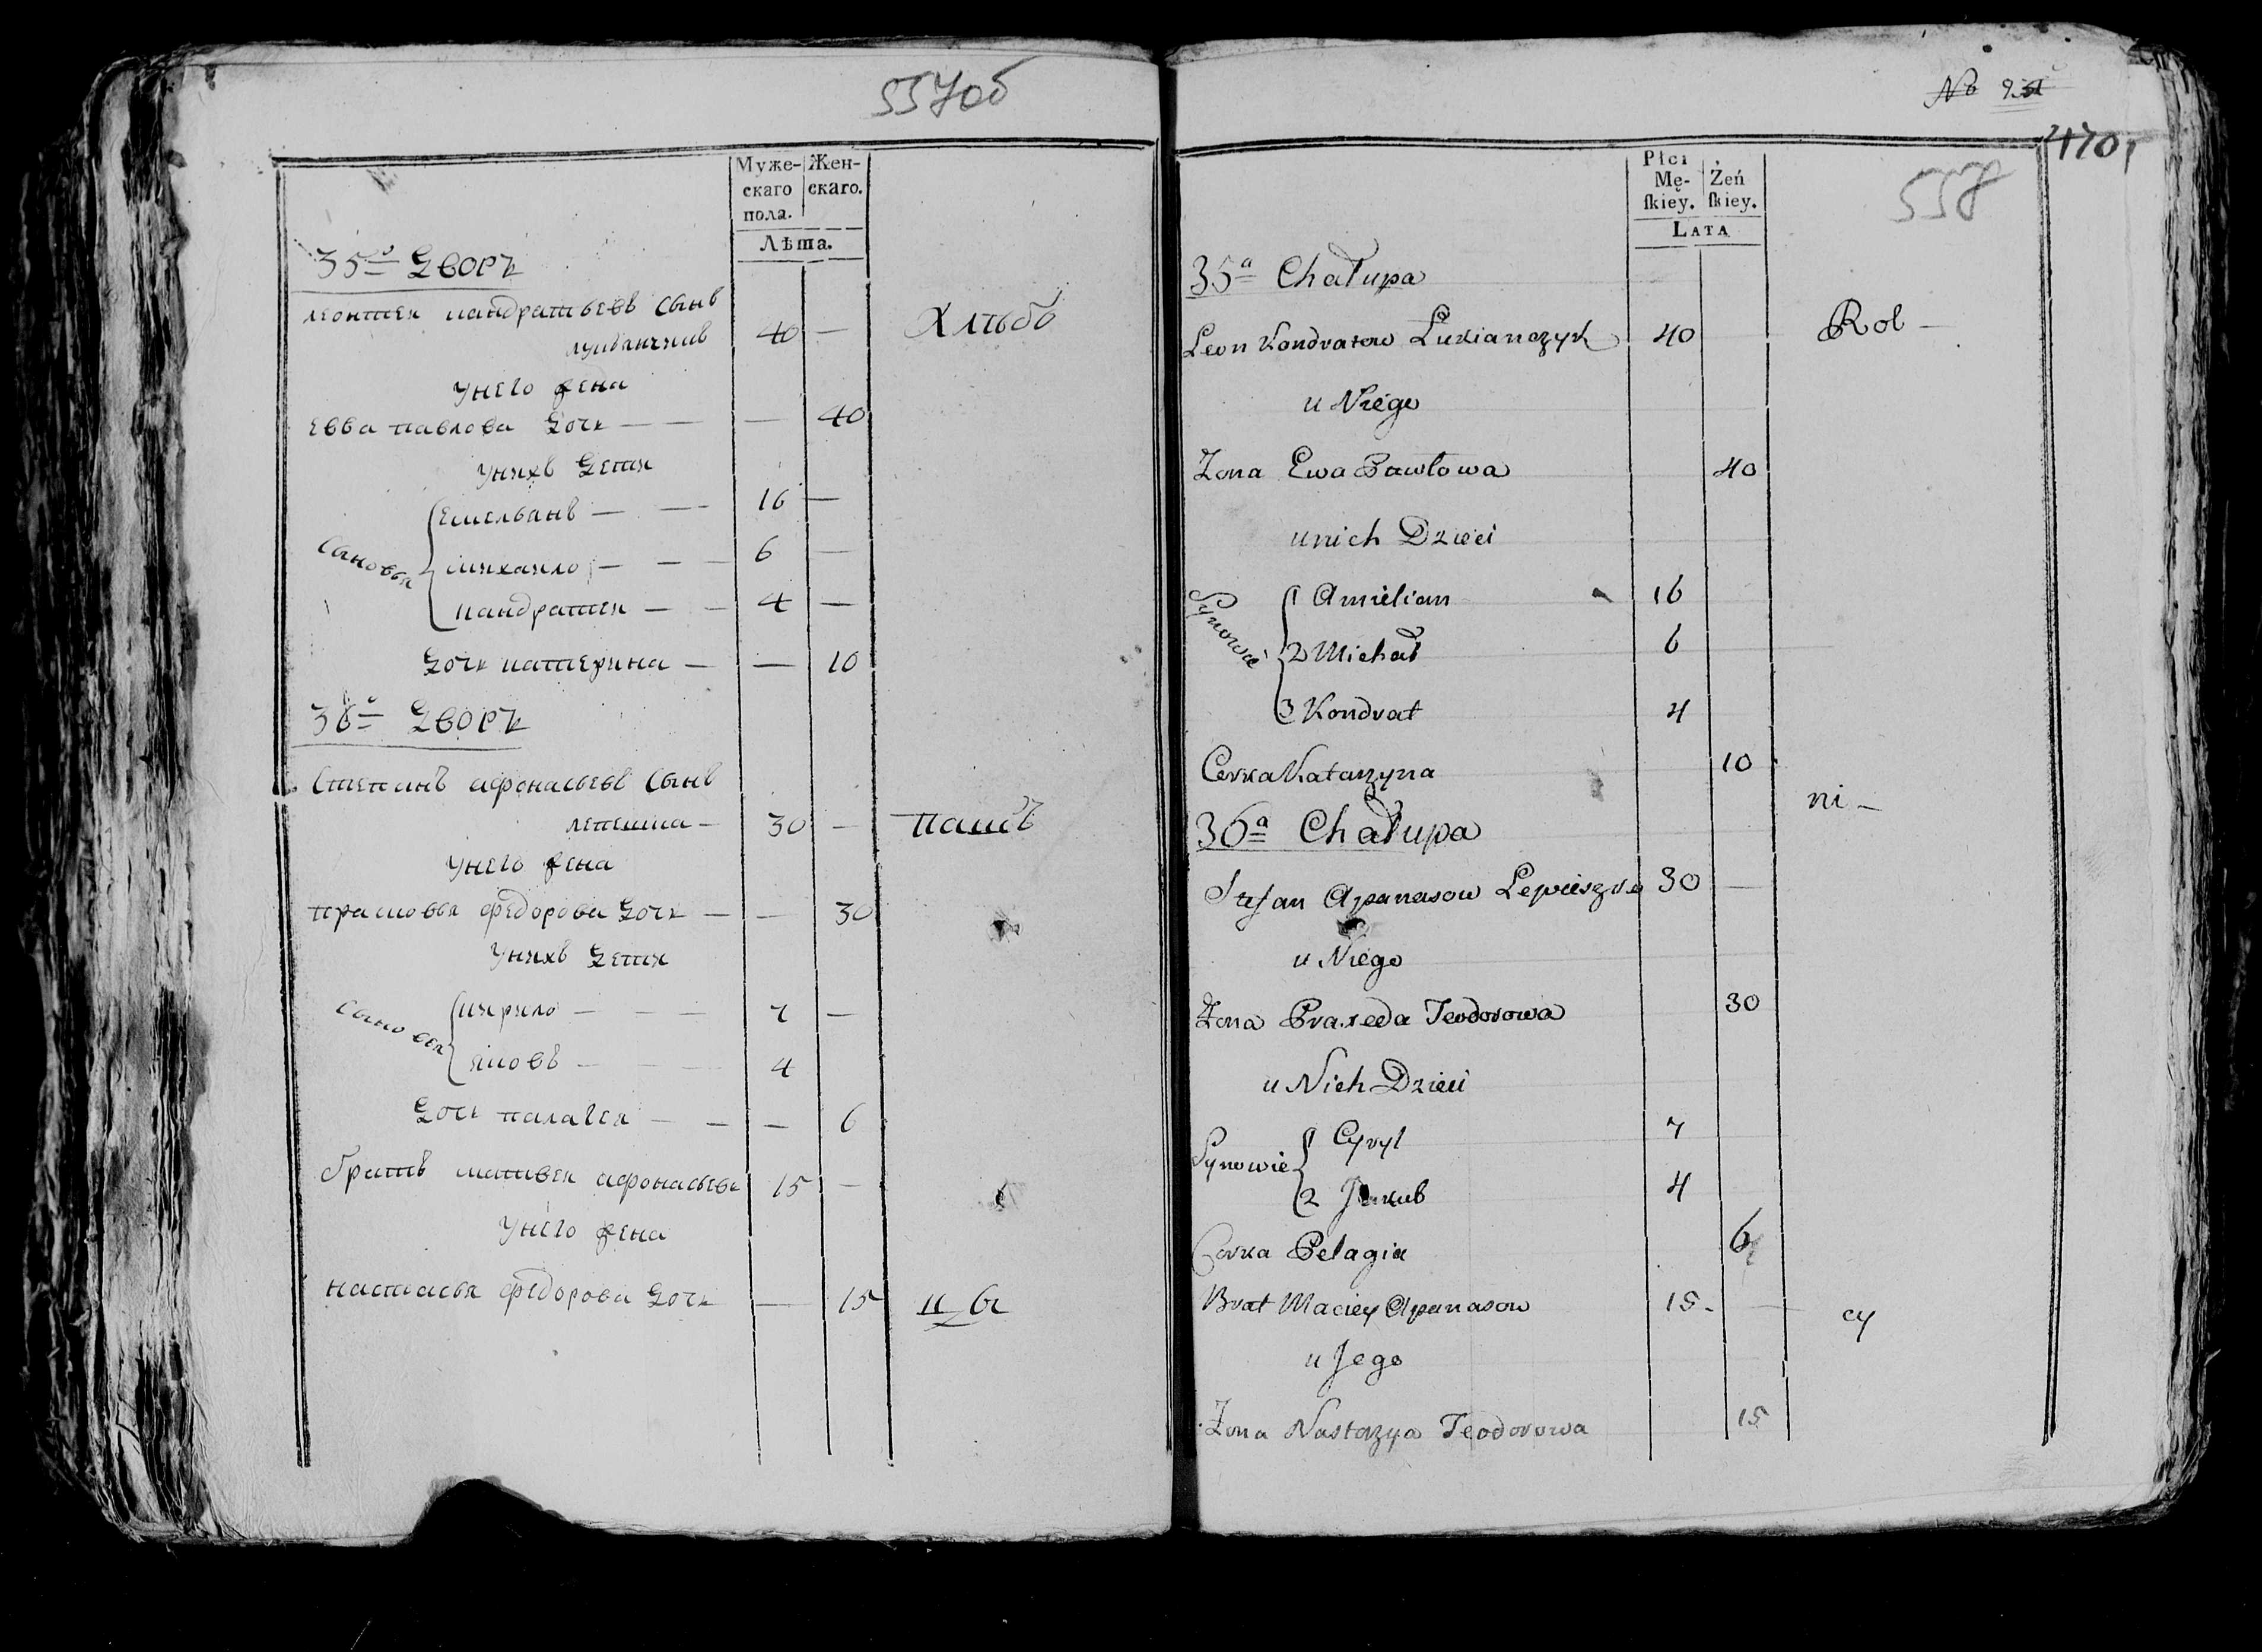 557об
Муже-
скаго
пола.
Жен-
скаго.
Лѣта.
35й Дворъ
леонтеи кандратьевъ сынъ
лукьянчикъ 40 — Хлѣбо
унего жена
евва павлова дочь — — — 40
унихъ дети
сыновья
емельянъ — — 16 —
михаило — — — 6 —
кандратеи — — 4 —
дочь катерина — — 10
36й Дворъ
степанъ афонасьевъ сынъ
лепешка — 30 — пашъ
унего жена
прасковья федорова дочь — — 30
унихъ дети
сыновья
кирило — — — 7 —
яковъ — — — 4
дочь палагея — — — 6
братъ матвеи афонасьевъ 15 —
унего жена
настасья федорова дочь — 15 цы
№
170
558
Płci
Mę-
skiey.
Żeń
skiey.
LATA
35a Chałupa
Leon Kondratow Lukianczyk 40 Rol —
u Niego
Zona Ewa Pawłowa 40
u nich Dzieci
Synowie
1 Amielian 16
2 Michał 6
3 Kondrat 4
Corka Katarzyna 10
ni —
36a Chałupa
Stefan Apanasow Lepieszko 30 —
u Niego
Zona Praxeda Teodorowa 30
u Nich Dzieci
Synowie
1 Cyryl 7
2 Jakub 4
Corka Pelagia 6
Brat Maciey Apanasow 15 — cy
u Jego
Zona Nastazya Teodorowa 15